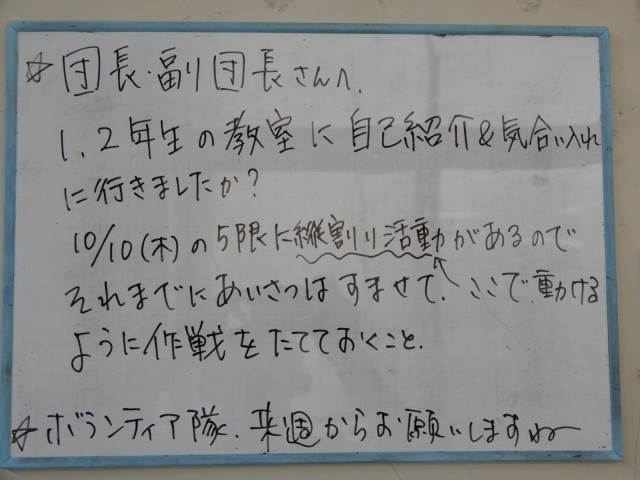 ☆団長・副団長さんへ.
1、2年生の教室に自己紹介&気合い入れ
に行きましたか?
10/10(木)の5限に縦割り活動があるので
それまでにあいさつはすませて、ここで動ける
ように作戦をたてておくこと.
☆ボランティア隊、来週からお願いしますね